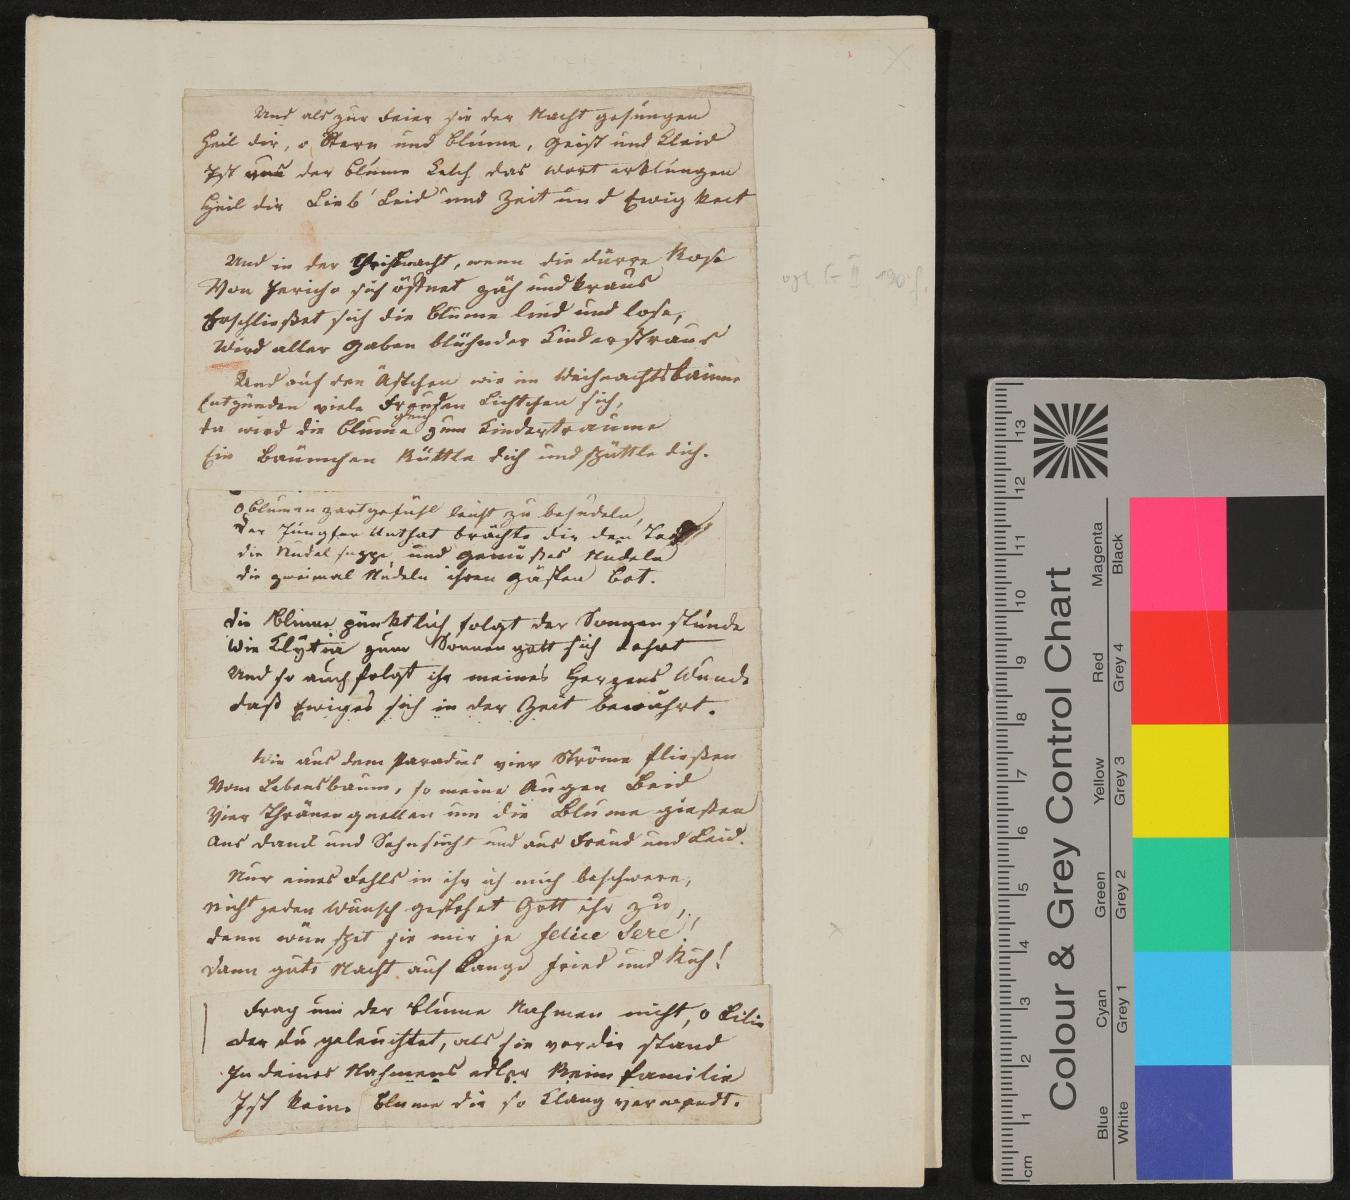 Und als zur Feier sie der Nacht gesungen
Heil dir, o Stern und Blume, Geist und Kleid
Ist aus der Blume Kelch das Wort erklungen
Heil dir Lieb' Leid und Zeit und Ewigkeit
Und in der Christnacht, wenn die dürre Rose
Von Jericho sich öffnet gäh und kraus
Erschließet sich die Blume lind und lose,
Wird aller Gaben blühnder Kinderstraus
Und auf den Ästchen wie im Weihnachtsbaume
Entzünden viele Freuden Lichtchen sich,
da wird die Blume gleich zum Kindertraume
Ein Bäumchen Rüttle dich und schüttle dich.
O Blumen zartgefühl leicht zu besudeln,
Der Jungfer Unthat brächte dir den Tod
die Nudelsuppe und Gemüßes Nudeln
die zweimal Nudeln ihren Gästen bot.
die Blume pünktlich folgt der Sonnen stunde
Wie Klytia zum Sonnengott sich kehrt
Und so auch folgt ihr meines Herzens Wunde
daß Ewiges sich in der Zeit bewährt.
Wie aus dem Paradies vier Ströme fließen
Vom Lebensbaum, so meine Augen beid
Vier Thränenquellen um die Blume gießen
Aus Dank und Sehnsucht und aus Freud und Leid.
Nur eines Fehls in ihr ich mich beschwere,
Nicht jeden Wunsch gestehet Gott ihr zu,
denn wünschet sie mir je felice sere!
Dann gute Nacht auf lange Fried und Ruh!
Frag um der Blume Nahmen nicht, o Lilie
der du geleuchtet, als sie vor dir stand
In deines Nahmens edler Reim familie
Ist keine Blume die so Klang verwandt.
Colour & Grey Control Chart
Blue Cyan Green Yellow Red Magenta
White Grey 1 Grey 2 Grey 3 Grey 4 Black
cm 1 2 3 4 5 6 7 8 9 10 11 12 13